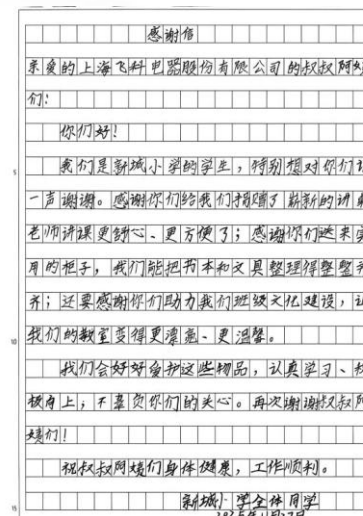 感谢信
亲爱的上海飞科电器股份有限公司的叔叔阿姨
们：
你们好！
我们是新城小学的学生，特别想对你们说
一声谢谢。感谢你们给我们捐赠了崭新的讲桌
老师讲课更舒心、更方便了；感谢你们送来实
用的柜子，我们能把书本和文具整理得整整齐
齐；还要感谢你们助力我们班级文化建设，让
我们的教室变得更漂亮、更温馨。
我们会好好爱护这些物品，认真学习、积
极向上，不辜负你们的关心。再次谢谢叔叔阿
姨们！
祝叔叔阿姨们身体健康，工作顺利。
新城小学全体同学
5
10
15